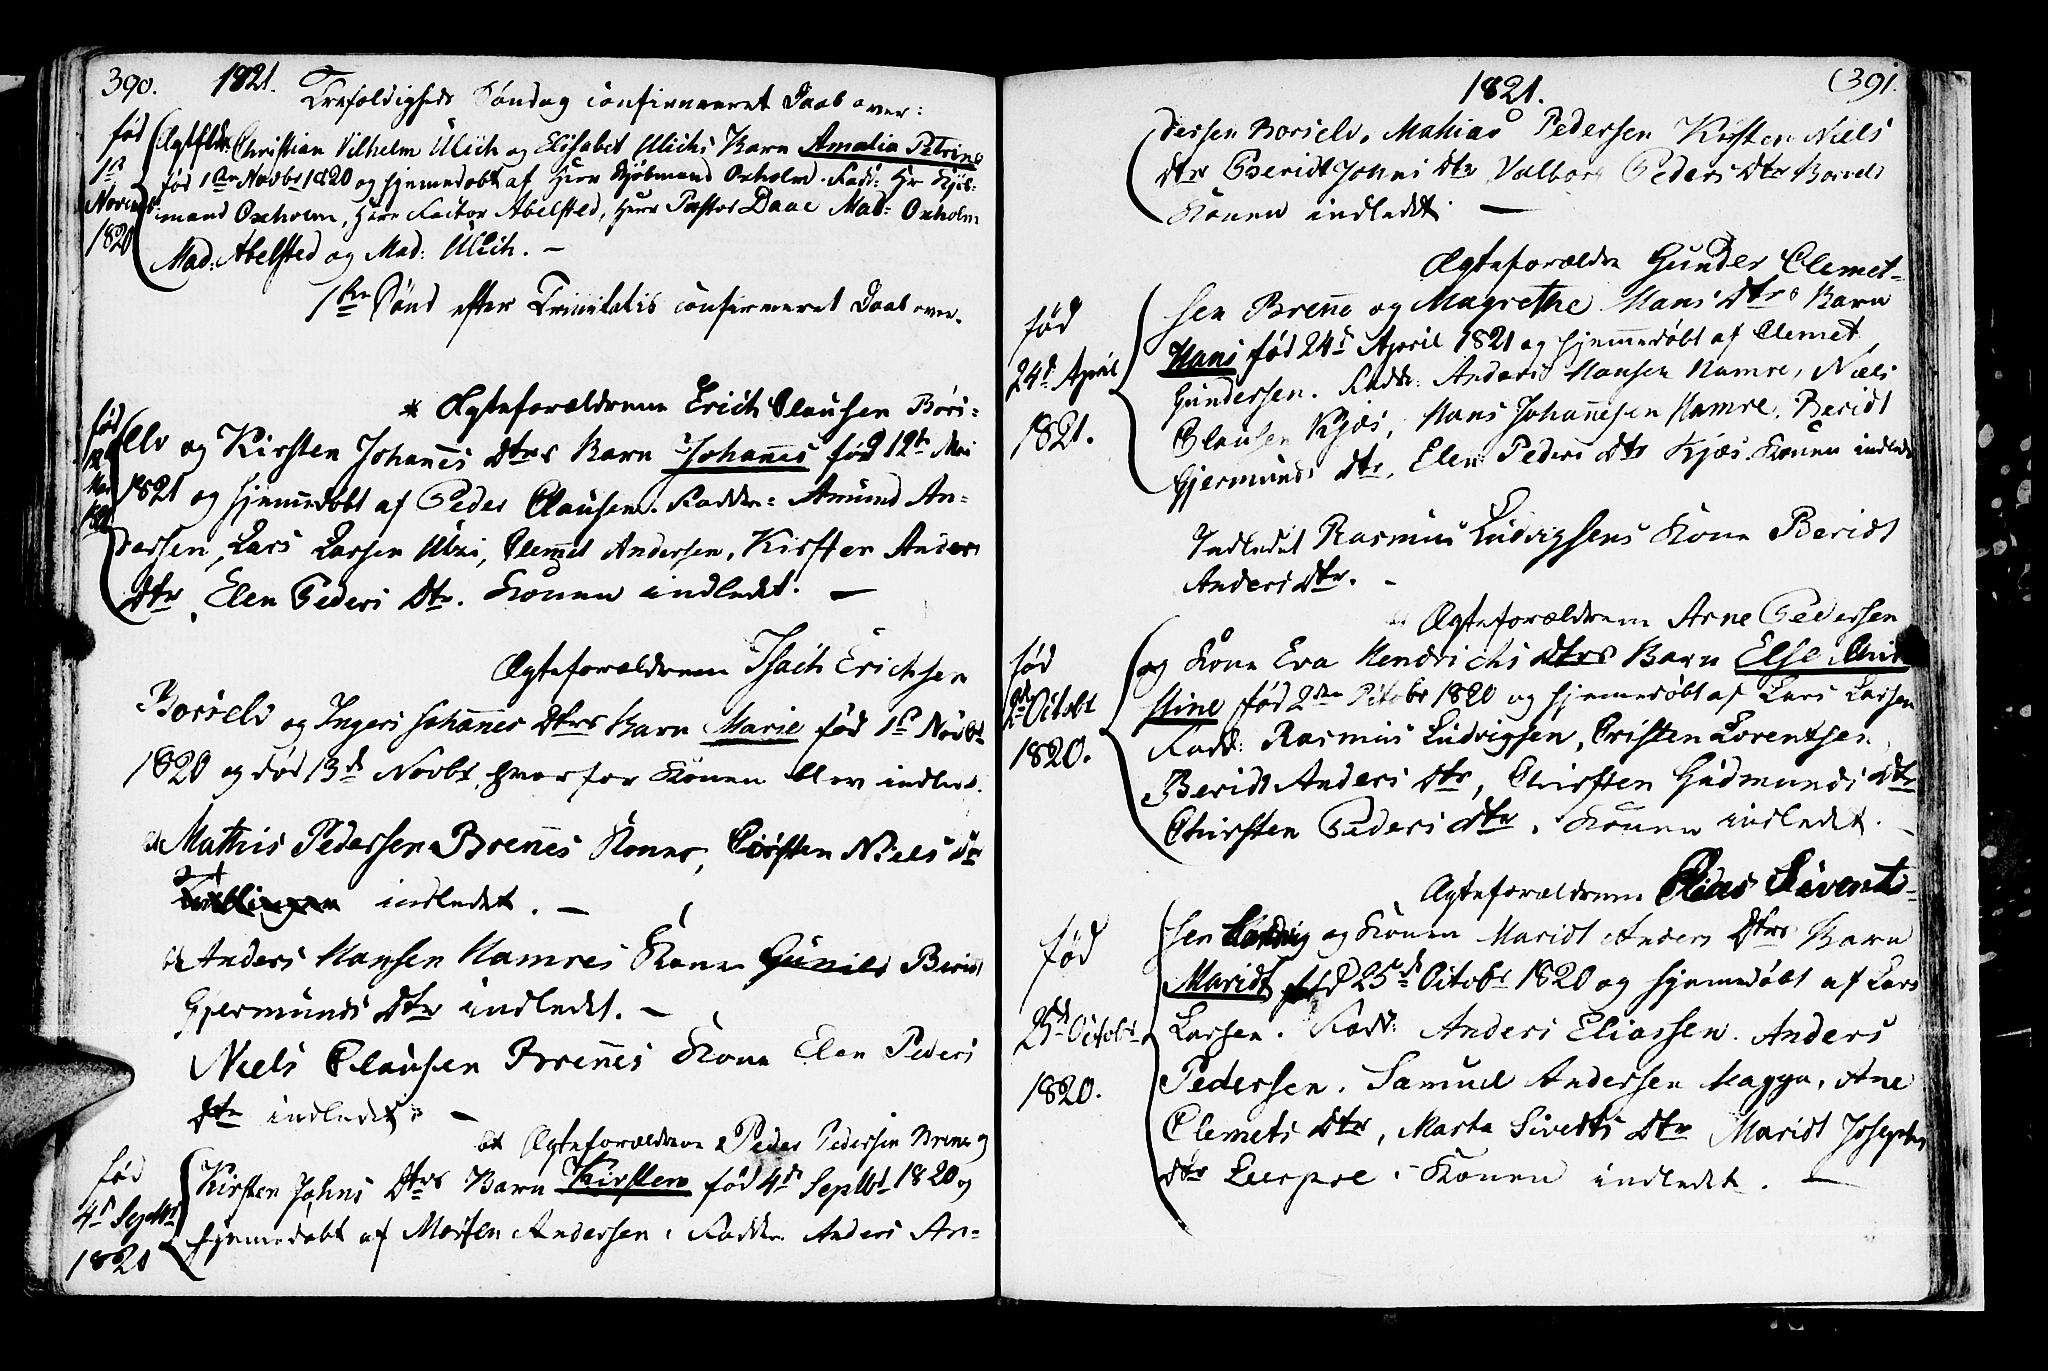 390.
1821.
Trefoldigheds Søndag confirmeret Daab over:
født
1st
Novemb:
1820
Ægtefolk Christian Vilhelm Ulich og Elisabet Ulichs Barn Amalia Petrine
fød 1ste Novbr 1820 og hjemmedøbt af Herr Kjøbmand Oxholm. Fadd: Hr Kjøb-
mand Oxholm, Herr Factor Abelsted, Herr Pastor Daae Mad: Oxholm
Mad: Abelsted og Mad: Ulich. –
1ste Sønd efter Trinitatis confirmeret Daab over.
fød
12
Mai
1821
* Ægteforældrene Erich Clausen Børs-
elv og Kirsten Johannes Dtrs Barn Johannes fød 12te Mai
1821 og hjemmedøbt af Peder Clausen. Fadde: Amund An-
dersen, Lars Larsen Utzi, Clemmet Andersen, Kirsten Anders
Dtr, Elen Peders Dtr. Konen indledet. –
Ægteforældrene Isach Erichsen
Børselv og Ingers Johannes Dtrs Barn Marie fød 1st Novbr
1820 og død 13de Novbr, hvorfor Konen blev indledt.
Mathis Pedersen Brennes Kone, Cirsten Niels Dtr
indledet. –
Anders Hansen Hamres Kone Gunild Beridt
Gjermunds Dtr indledet. –
Niels Clausen Brennes Kone Elen Peders
Dtr indledet. –
fød
4d Septbr
1820
Ægteforældrene Peder Pedersen Brenne og
Kirsten Johns Dtrs Barn Kirsten fød 4d Septbr 1820 og
hjemmedøbt af Morten Andersen. Fadde. Anders An-
1821.
(391.
dersen Borselv. Mathias Pedersen Kirsten Niels
Dtr Beridt Johns Dtr Valbor Peders Dtr Borselv
Konen indledet. –
fød
24d April
1821.
Ægteforældre Gunder Clemet-
sen Brenne og Magrethe Hans Dtrs Barn
Hans fød 24d April 1821 og hjemmedøbt af Clemet
Gundersen. Fadde: Anders Hansen Hamre, Niels
Clausen Kjæs, Hans Johannesen Hamre. Beridt
Gjermunds Dtr. Elen Peders Dtr Kjæs Konen indledt
Indledet Rasmus Ludvigsens Kone Beridt
Anders Dtr. –
fød
2d Octobr
1820.
Ægteforældrene Arne Pedersen
og Kone Eva Hendrichs Dtrs Barn Else Chri-
stine fød 2den Octobr 1820 og hjemmedøbt af Lars Larsen
Fadd: Rasmus Ludvigsen, Cristen Lorentsen,
Beridt Anders Dtr, Chirsten Gudmunds Dtr
Chirsten Peders Dtr. Konen indledet. –
fød
25d Octobr
1820.
Ægteforældrene Elias Siverts-
sen og Konen Maridt Anders Dtrs Barn
Maridt fød 25de Octobr 1820 og hjemmedøbt af Lars
Larsen. Fadd: Anders Eliassen. Anders
Pedersen. Samuel Andersen Magga, Ane
Clemets Dtr, Marta Siverts Dtr Maridt Josephs
Dtr Leerpoe. Konen indledet. –